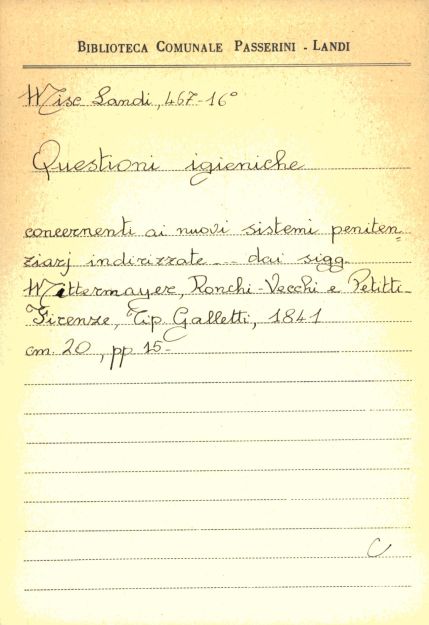 BIBLIOTECA COMUNALE PASSERINI - LANDI
Misc Landi, 467-16°
Questioni igieniche
concernenti ai nuovi sistemi peniten=
ziarj indirizzate ... dai sigg.
Mittermayer, Ronchi-Vecchi e Petitti-
Firenze, Tip. Galletti, 1841
cm. 20, pp 15-
C